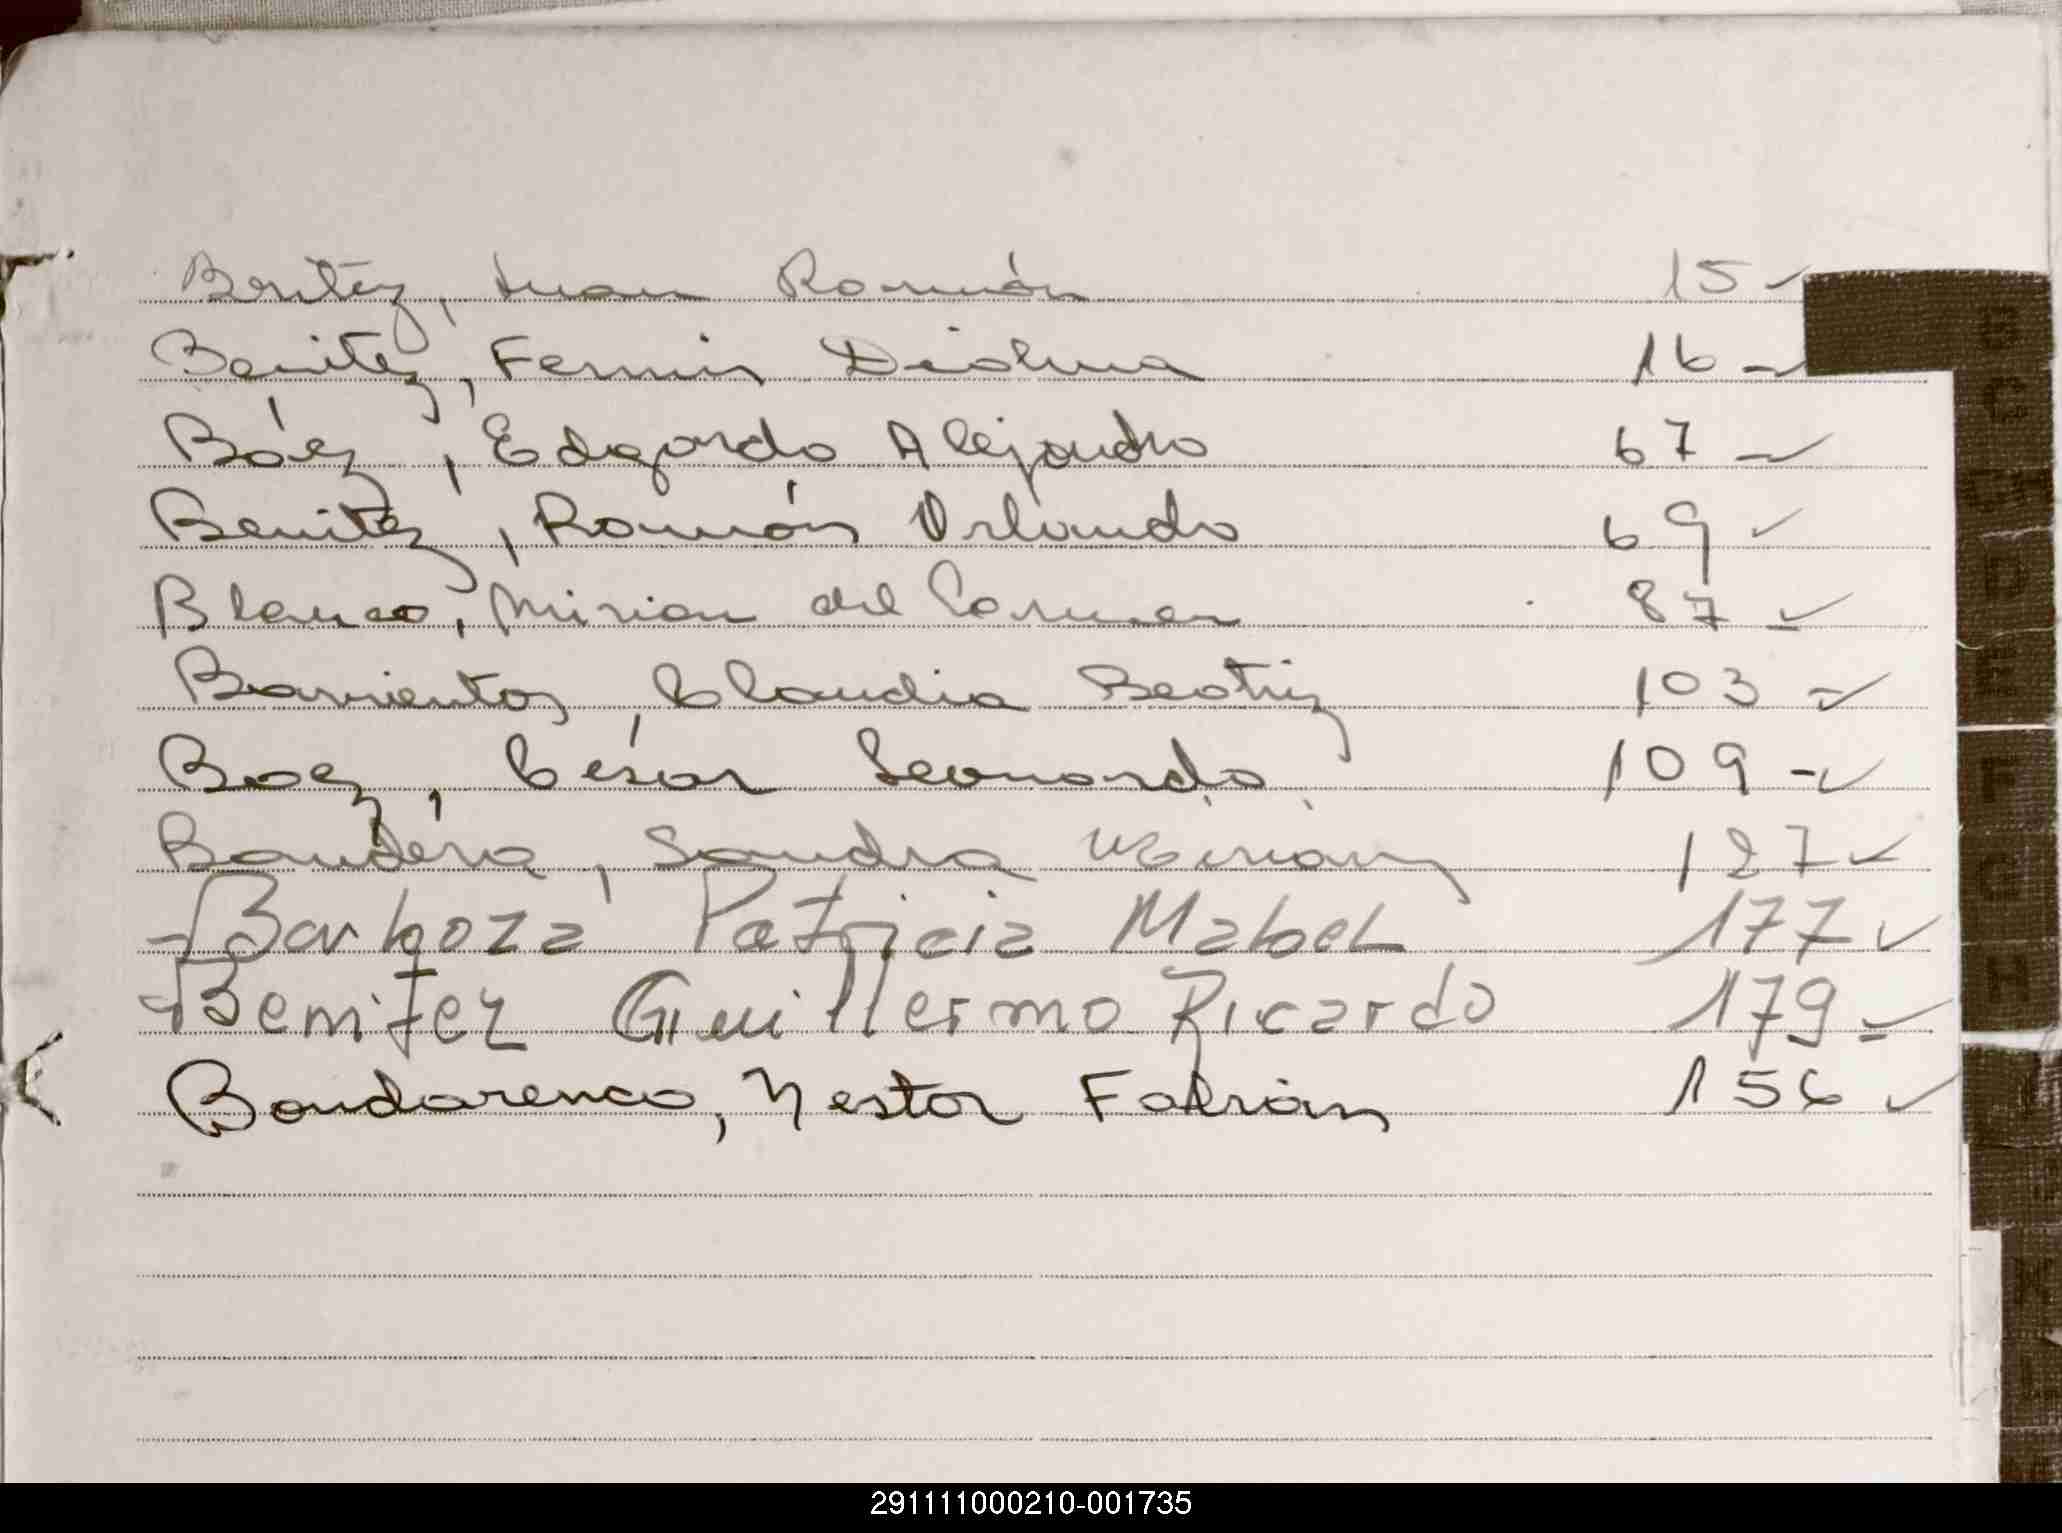 Benitez, Juan Román 15
Benitez, Fermin Diolma 16
Báez, Edgardo Alejandro 67
Benitez, Román Orlando 69
Blanco, Mirian del Carmen 87
Barrientos, Claudia Beatriz 103
Baez, César Leonardo 109
Bandera, Sandra Mirian 127
Barboza Patricia Mabel 177
Benitez Guillermo Ricardo 179
Bondarenco, Nestor Fabián 156
B
C
D
E
F
G
H
291111000210-001735